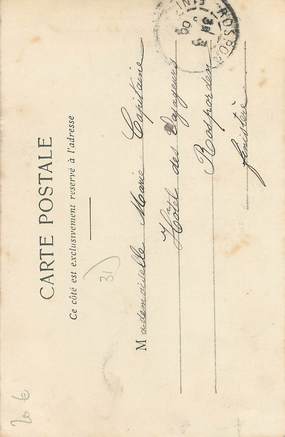 CARTE POSTALE
Ce côté est exclusivement réservé à l'adresse
Mademoiselle Marie Capitaine
Hôtel des Voyageurs
Rosporden
finistère
31
20 €